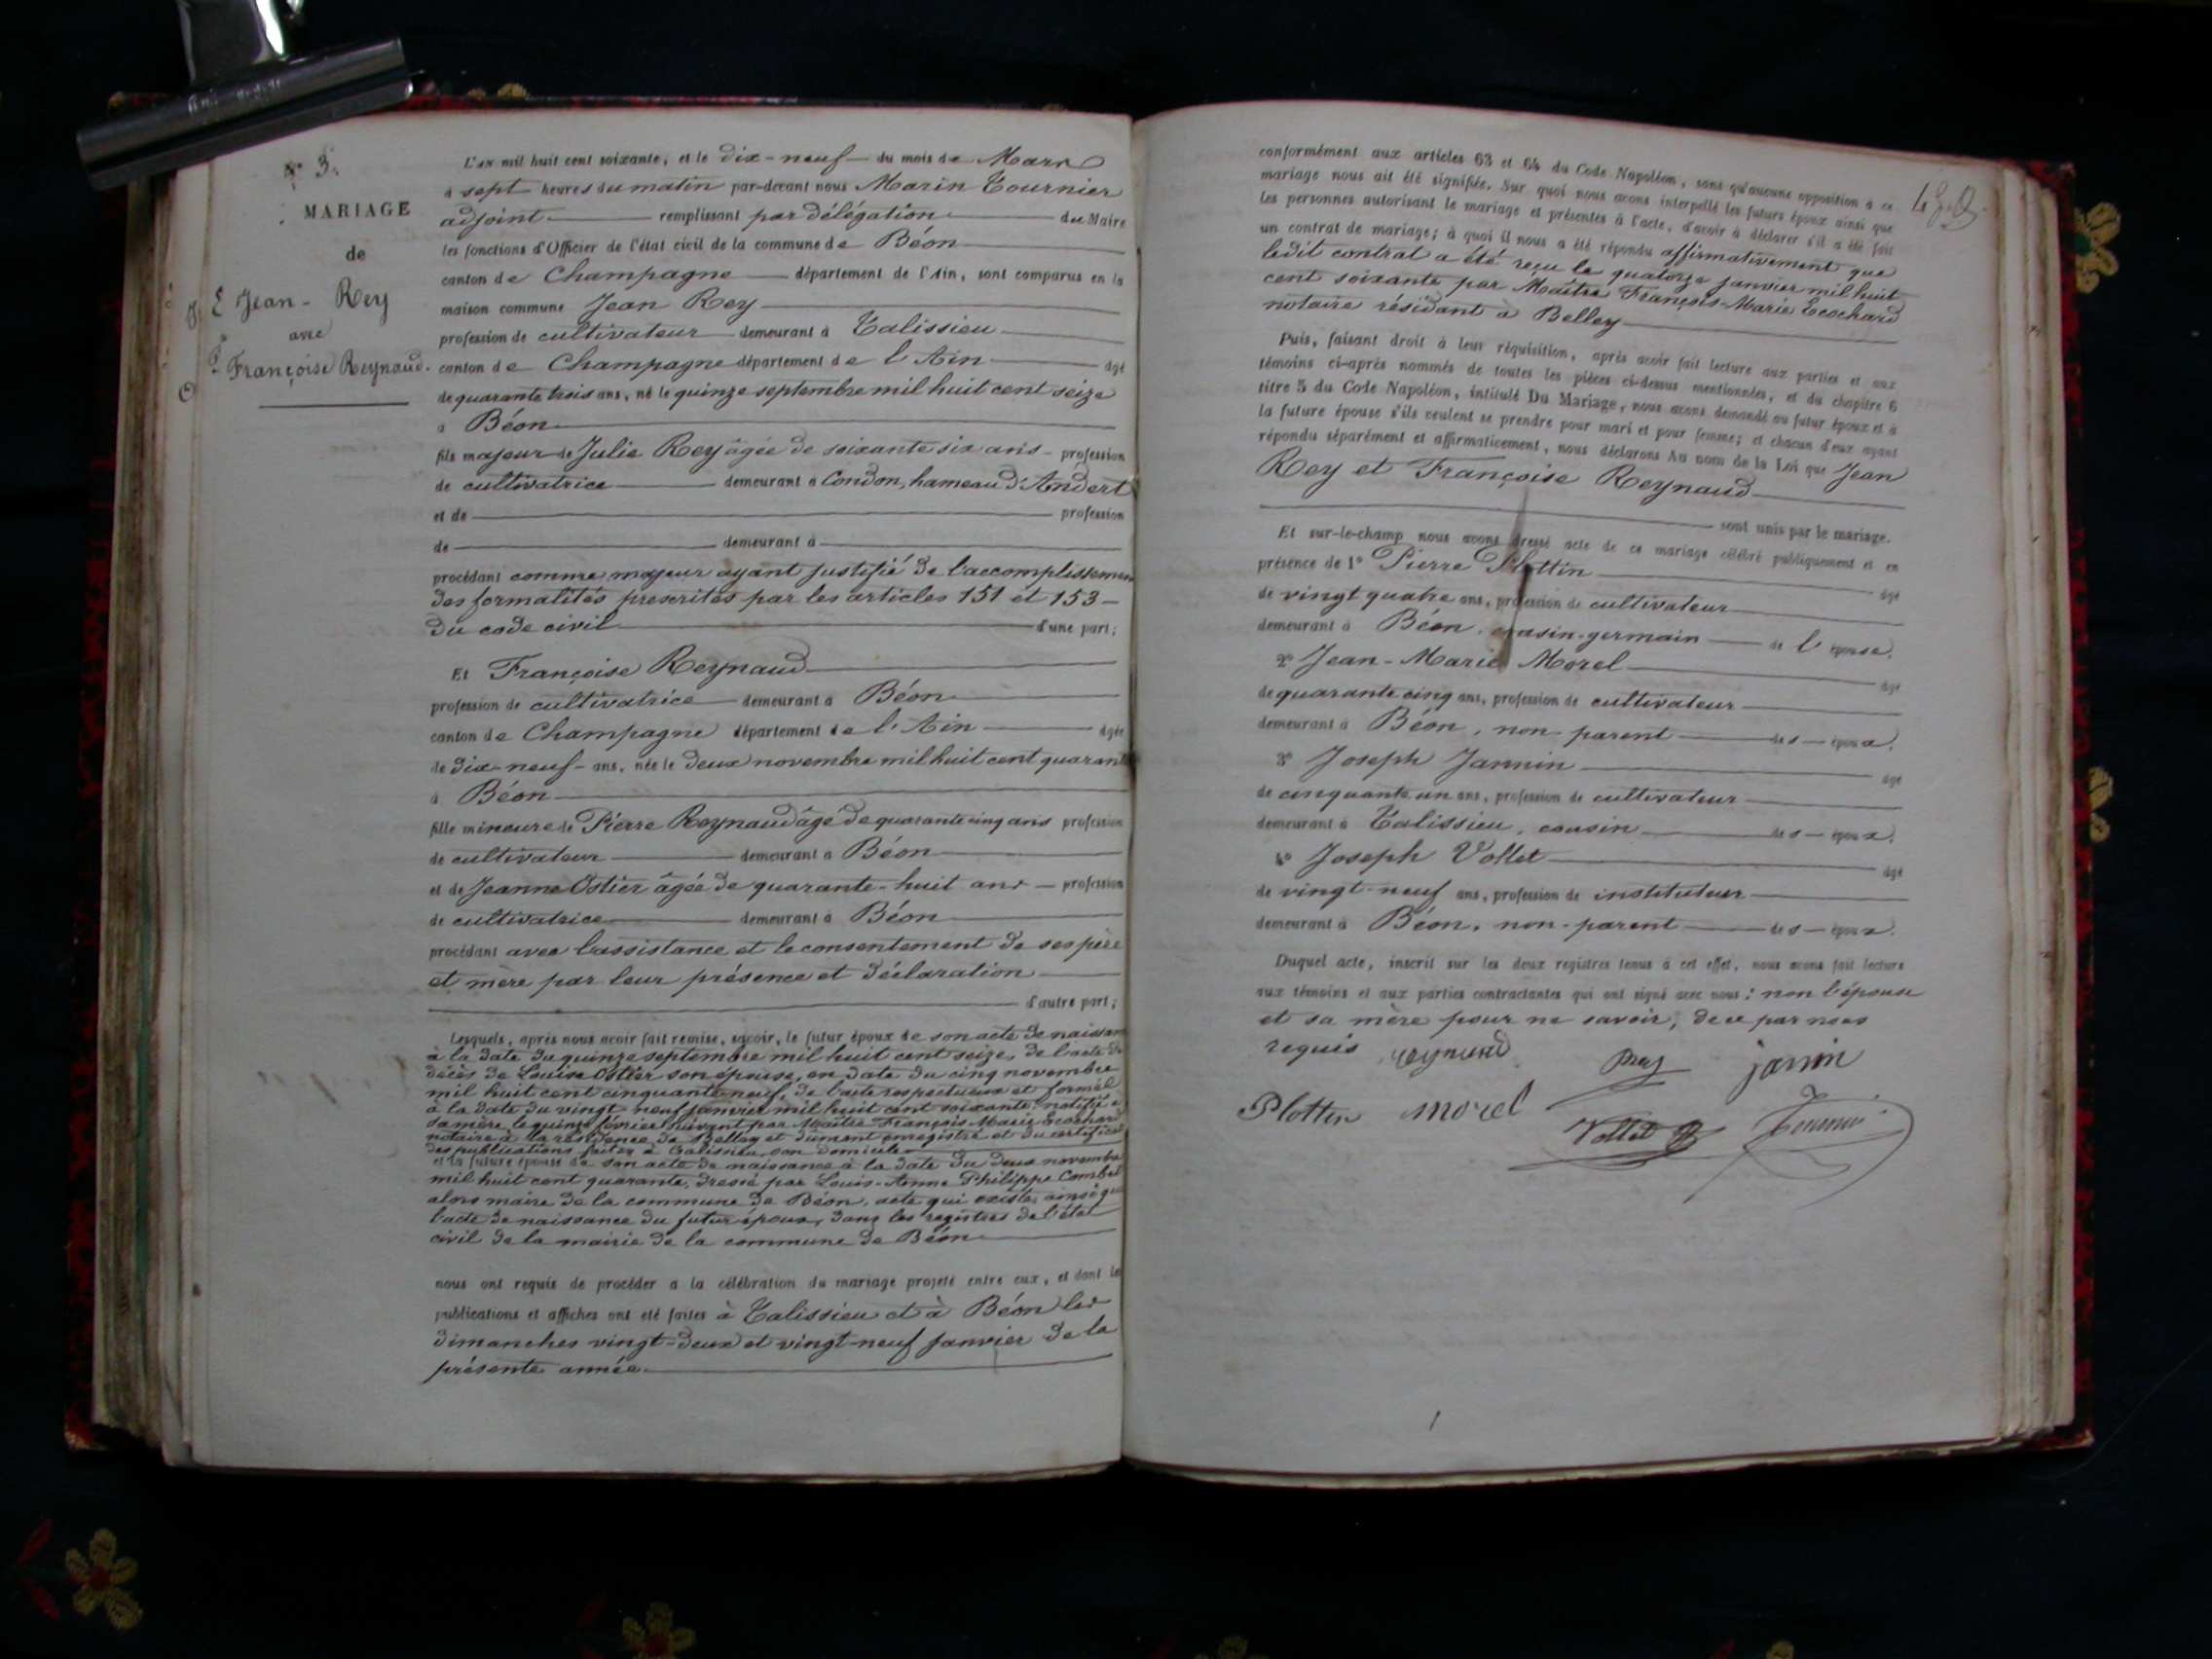 N° 3.
MARIAGE
de
Jean - Rey
avec
Françoise Reynaud.
L'an mil huit cent soixante, et le dix-neuf du mois de Mars
à sept heures du matin par-devant nous Marin Tournier
adjoint remplissant par délégation du Maire
les fonctions d'Officier de l'état civil de la commune de Béon
canton de Champagne département de l'Ain, sont comparus en la
maison commune Jean Rey
profession de cultivateur demeurant à Talissieu
canton de Champagne département de l'Ain âgé
de quarante trois ans, né le quinze septembre mil huit cent seize
à Béon
fils majeur de Julie Rey âgée de soixante six ans - profession
de cultivatrice demeurant à Condon, hameau d'Andert
et de profession
de demeurant à
procédant comme majeur ayant justifié de l'accomplissement
des formalités prescrites par les articles 151 et 153
du code civil d'une part;
Et Françoise Reynaud
profession de cultivatrice demeurant à Béon
canton de Champagne département de l'Ain âgée
de dix-neuf ans, née le deux novembre mil huit cent quarante
à Béon
fille mineure de Pierre Reynaud âgé de quarante cinq ans profession
de cultivateur demeurant à Béon
et de Jeanne Ostier âgée de quarante-huit ans profession
de cultivatrice demeurant à Béon
procédant avec l'assistance et le consentement de ses père
et mère par leur présence et déclaration
d'autre part;
Lesquels, après nous avoir fait remise, savoir, le futur époux de son acte de naissance
à la date du quinze septembre mil huit cent seize, de l'acte de
décès de Louise Ostier son épouse, en date du cinq novembre
mil huit cent cinquante-neuf, de l'acte respectueux et formel
à la date du vingt neuf janvier mil huit cent soixante, notifié à
sa mère le quinze février suivant par Maître François Marie Ecochard
notaire à la résidence de Belley et dûment enregistré et du certificat
des publications faites à Talissieu, son domicile
et la future épouse de son acte de naissance à la date du deux novembre
mil huit cent quarante, dressé par Louis-Anne Philippe Combet
alors maire de la commune de Béon, acte qui existe, ainsi que
l'acte de naissance du futur époux, dans les registres de l'état
civil de la mairie de la commune de Béon
nous ont requis de procéder à la célébration du mariage projeté entre eux, et dont les
publications et affiches ont été faites à Talissieu et à Béon les
dimanches vingt-deux et vingt-neuf janvier de la
présente année.
conformément aux articles 63 et 64 du Code Napoléon, sans qu'aucune opposition à ce
mariage nous ait été signifiée. Sur quoi nous avons interpellé les futurs époux ainsi que
les personnes autorisant le mariage et présentes à l'acte, d'avoir à déclarer s'il a été fait
un contrat de mariage; à quoi il nous a été répondu affirmativement que
ledit contrat a été reçu le quatorze janvier mil huit
cent soixante par Maître François-Marie Ecochard
notaire résidant à Belley
Puis, faisant droit à leur réquisition, après avoir fait lecture aux parties et aux
témoins ci-après nommés de toutes les pièces ci-dessus mentionnées, et du chapitre 6
titre 5 du Code Napoléon, intitulé Du Mariage, nous avons demandé au futur époux et à
la future épouse s'ils veulent se prendre pour mari et pour femme; et chacun d'eux ayant
répondu séparément et affirmativement, nous déclarons Au nom de la Loi que Jean
Rey et Françoise Reynaud
sont unis par le mariage.
Et sur-le-champ nous avons dressé acte de ce mariage célébré publiquement et en
présence de 1° Pierre Plottin âgé
de vingt quatre ans, profession de cultivateur
demeurant à Béon, cousin-germain de l'épouse.
2° Jean-Marie Morel âgé
de quarante cinq ans, profession de cultivateur
demeurant à Béon, non parent des époux.
3° Joseph Jannin âgé
de cinquante un ans, profession de cultivateur
demeurant à Talissieu, cousin des époux.
4° Joseph Vollet âgé
de vingt-neuf ans, profession de instituteur
demeurant à Béon, non-parent des époux.
Duquel acte, inscrit sur les deux registres tenus à cet effet, nous avons fait lecture
aux témoins et aux parties contractantes qui ont signé avec nous: non l'épouse
et sa mère pour ne savoir, de ce par nous
requis reynaud Rey janin
Plottin morel Vollet Tournier